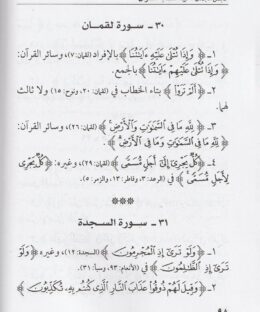 ٣٠ - سورة لقمان
١ - ﴿ وَإِذَا تُتْلَىٰ عَلَيْهِ ءَايَٰتُنَا ﴾ بالإفراد (لقمان: ٧)، وسائر القرآن:
﴿ وَإِذَا تُتْلَىٰ عَلَيْهِمْ ءَايَٰتُنَا ﴾ بالجمع.
٢ - ﴿ أَلَمْ تَرَوْا ﴾ بتاء الخطاب في (لقمان: ٢٠، ونوح: ١٥) ولا ثالث
لهما.
٣ - ﴿ لِلَّهِ مَا فِي السَّمَٰوَٰتِ وَالْأَرْضِ ﴾ (لقمان: ٢٦)، وسائر القرآن:
﴿ لِلَّهِ مَا فِي السَّمَٰوَٰتِ وَمَا فِي الْأَرْضِ ﴾.
٤ - ﴿ كُلٌّ يَجْرِي إِلَىٰ أَجَلٍ مُّسَمًّى ﴾ (لقمان: ٢٩)، وغيره: ﴿ كُلٌّ يَجْرِي
لِأَجَلٍ مُّسَمًّى ﴾ في (الرعد: ٢، وفاطر: ١٣، والزمر: ٥).
***
٣١ - سورة السجدة
١ - ﴿ وَلَوْ تَرَىٰ إِذِ الْمُجْرِمُونَ ﴾ (السجدة: ١٢)، وغيره: ﴿ وَلَوْ
تَرَىٰ إِذِ الظَّٰلِمُونَ ﴾ في (الأنعام: ٩٣، وسبأ: ٣١).
٢ - ﴿ وَقِيلَ لَهُمْ ذُوقُوا عَذَابَ النَّارِ الَّذِي كُنتُم بِهِ تُكَذِّبُونَ ﴾
٩٨